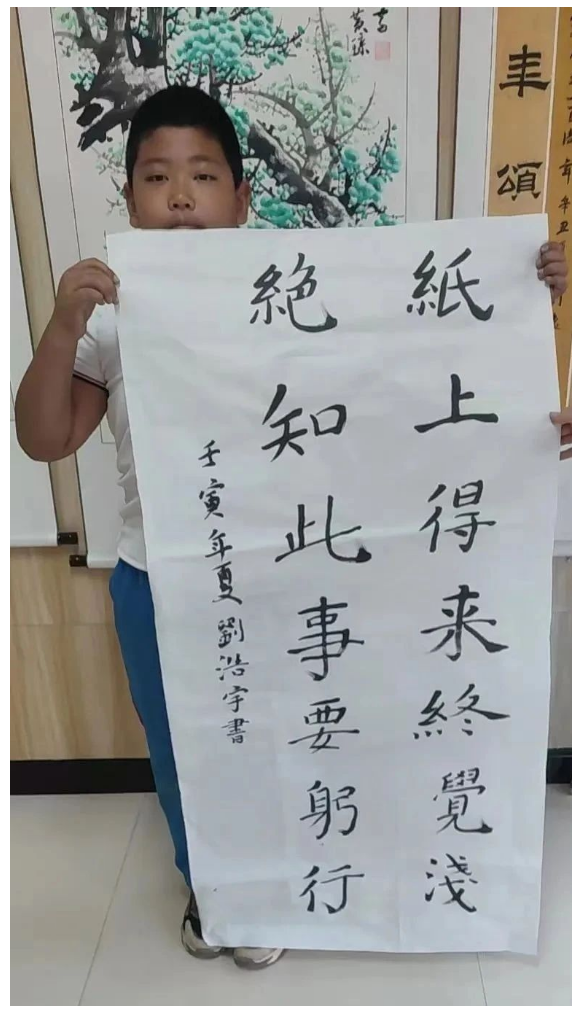 紙上得来終覺淺
絶知此事要躬行
壬寅年夏 劉浩宇書
頌
辛丑